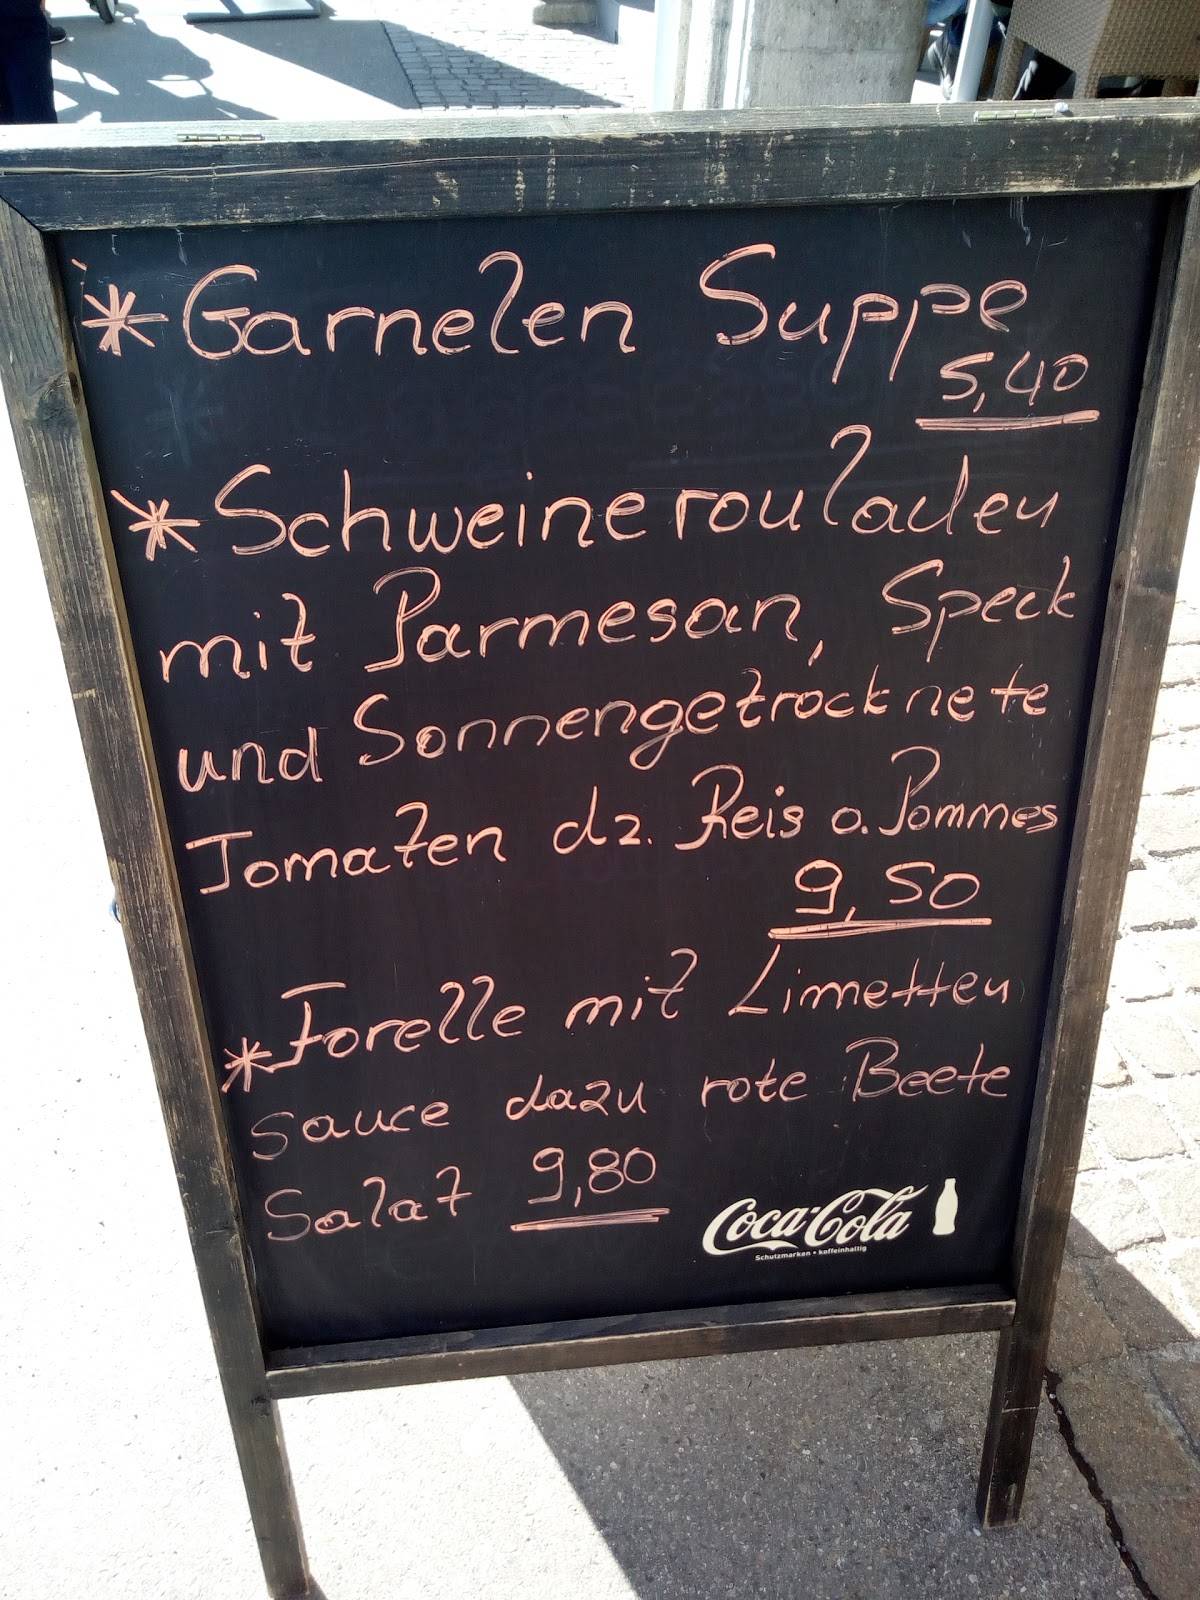 *Garnelen Suppe
5,40
*Schweinerouladen
mit Parmesan, Speck
und Sonnengetrocknete
Tomaten dz. Reis o. Pommes
9,50
*Forelle mit Limetten
sauce dazu rote Beete
Salat 9,80
Coca-Cola
Schutzmarken • koffeinhaltig